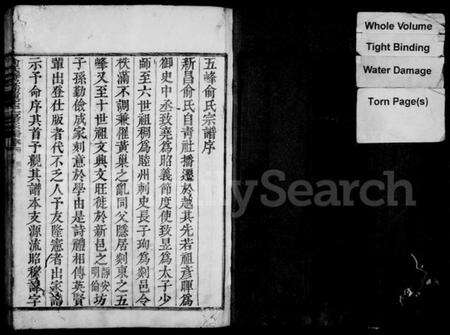 五峰俞氏宗譜序
新昌俞氏自青社播遷於越其先若祖彥暉爲
御史中丞致堯爲昭義節度使致昱爲太子少
師至六世祖稠爲睦州刺史長子珣爲剡邑令
秩滿不調兼懼黃巢之亂同父隱居剡東之五
峰又至十世祖文典文旺徙於新邑之靜安坊明倫
子孫勤儉成家刻意於學由是詩禮相傳英賢
輩出登仕版者代不乏人予友隆憲者出家譜
示予命序其首予觀其譜本支源流昭穆諱字
Whole Volume
Tight Binding
Water Damage
Torn Page(s)
FamilySearch